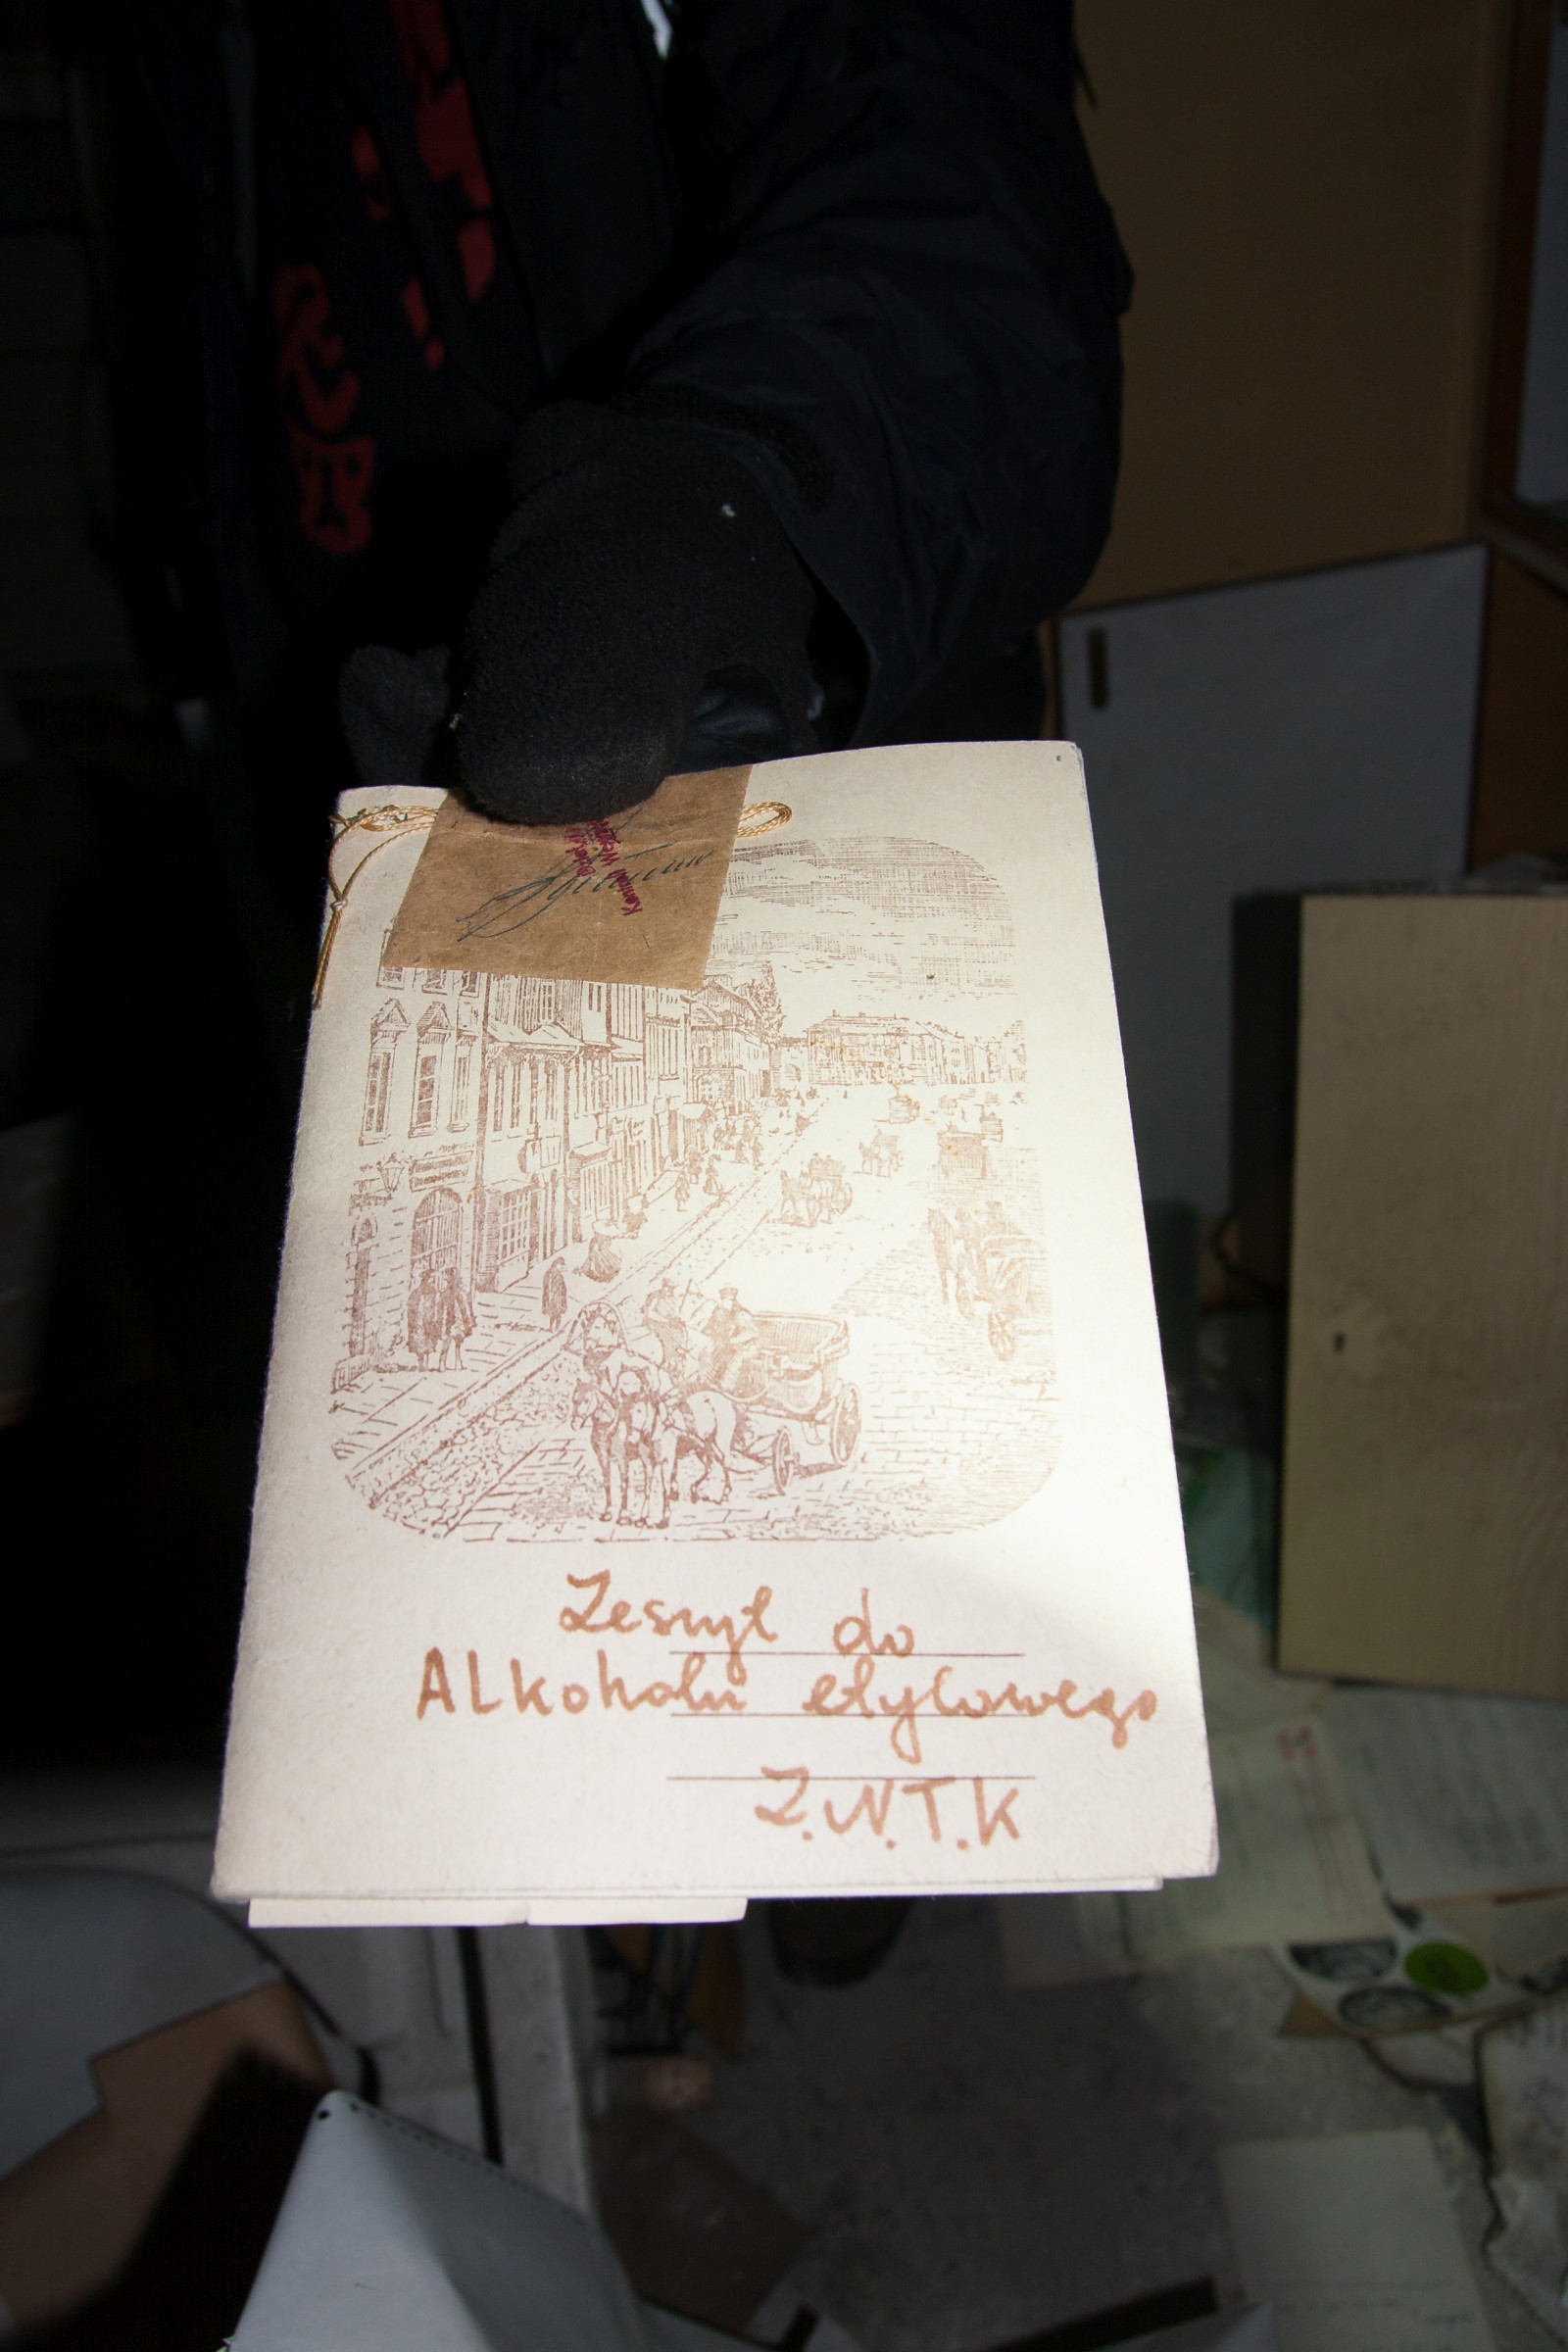 Zeszyt do
ALkoholu etylowego
Z.N.T.K